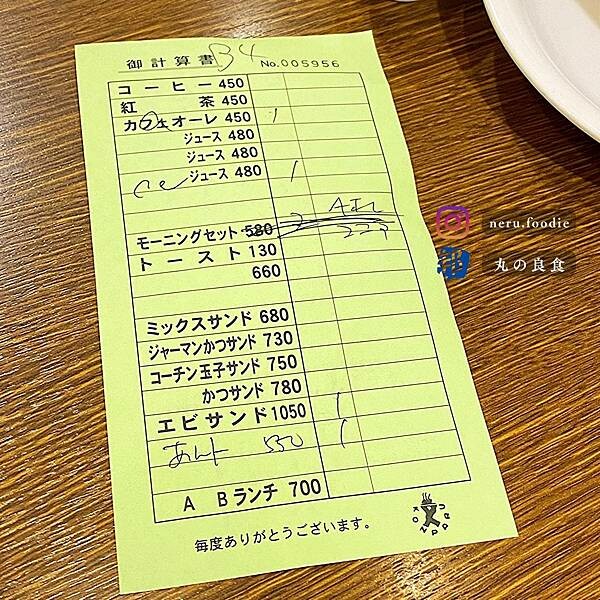 御計算書 B4 No.005956
コーヒー 450
紅茶 450
カフェオーレ 450 1
ジュース 480
ジュース 480
ジュース 480 1
モーニングセット 580
トースト 130
660
ミックスサンド 680
ジャーマンかつサンド 730
コーチン玉子サンド 750
かつサンド 780
エビサンド 1050 1
あんト 550 1
A Bランチ 700
毎度ありがとうございます。
KONPARU
neru.foodie
丸の良食